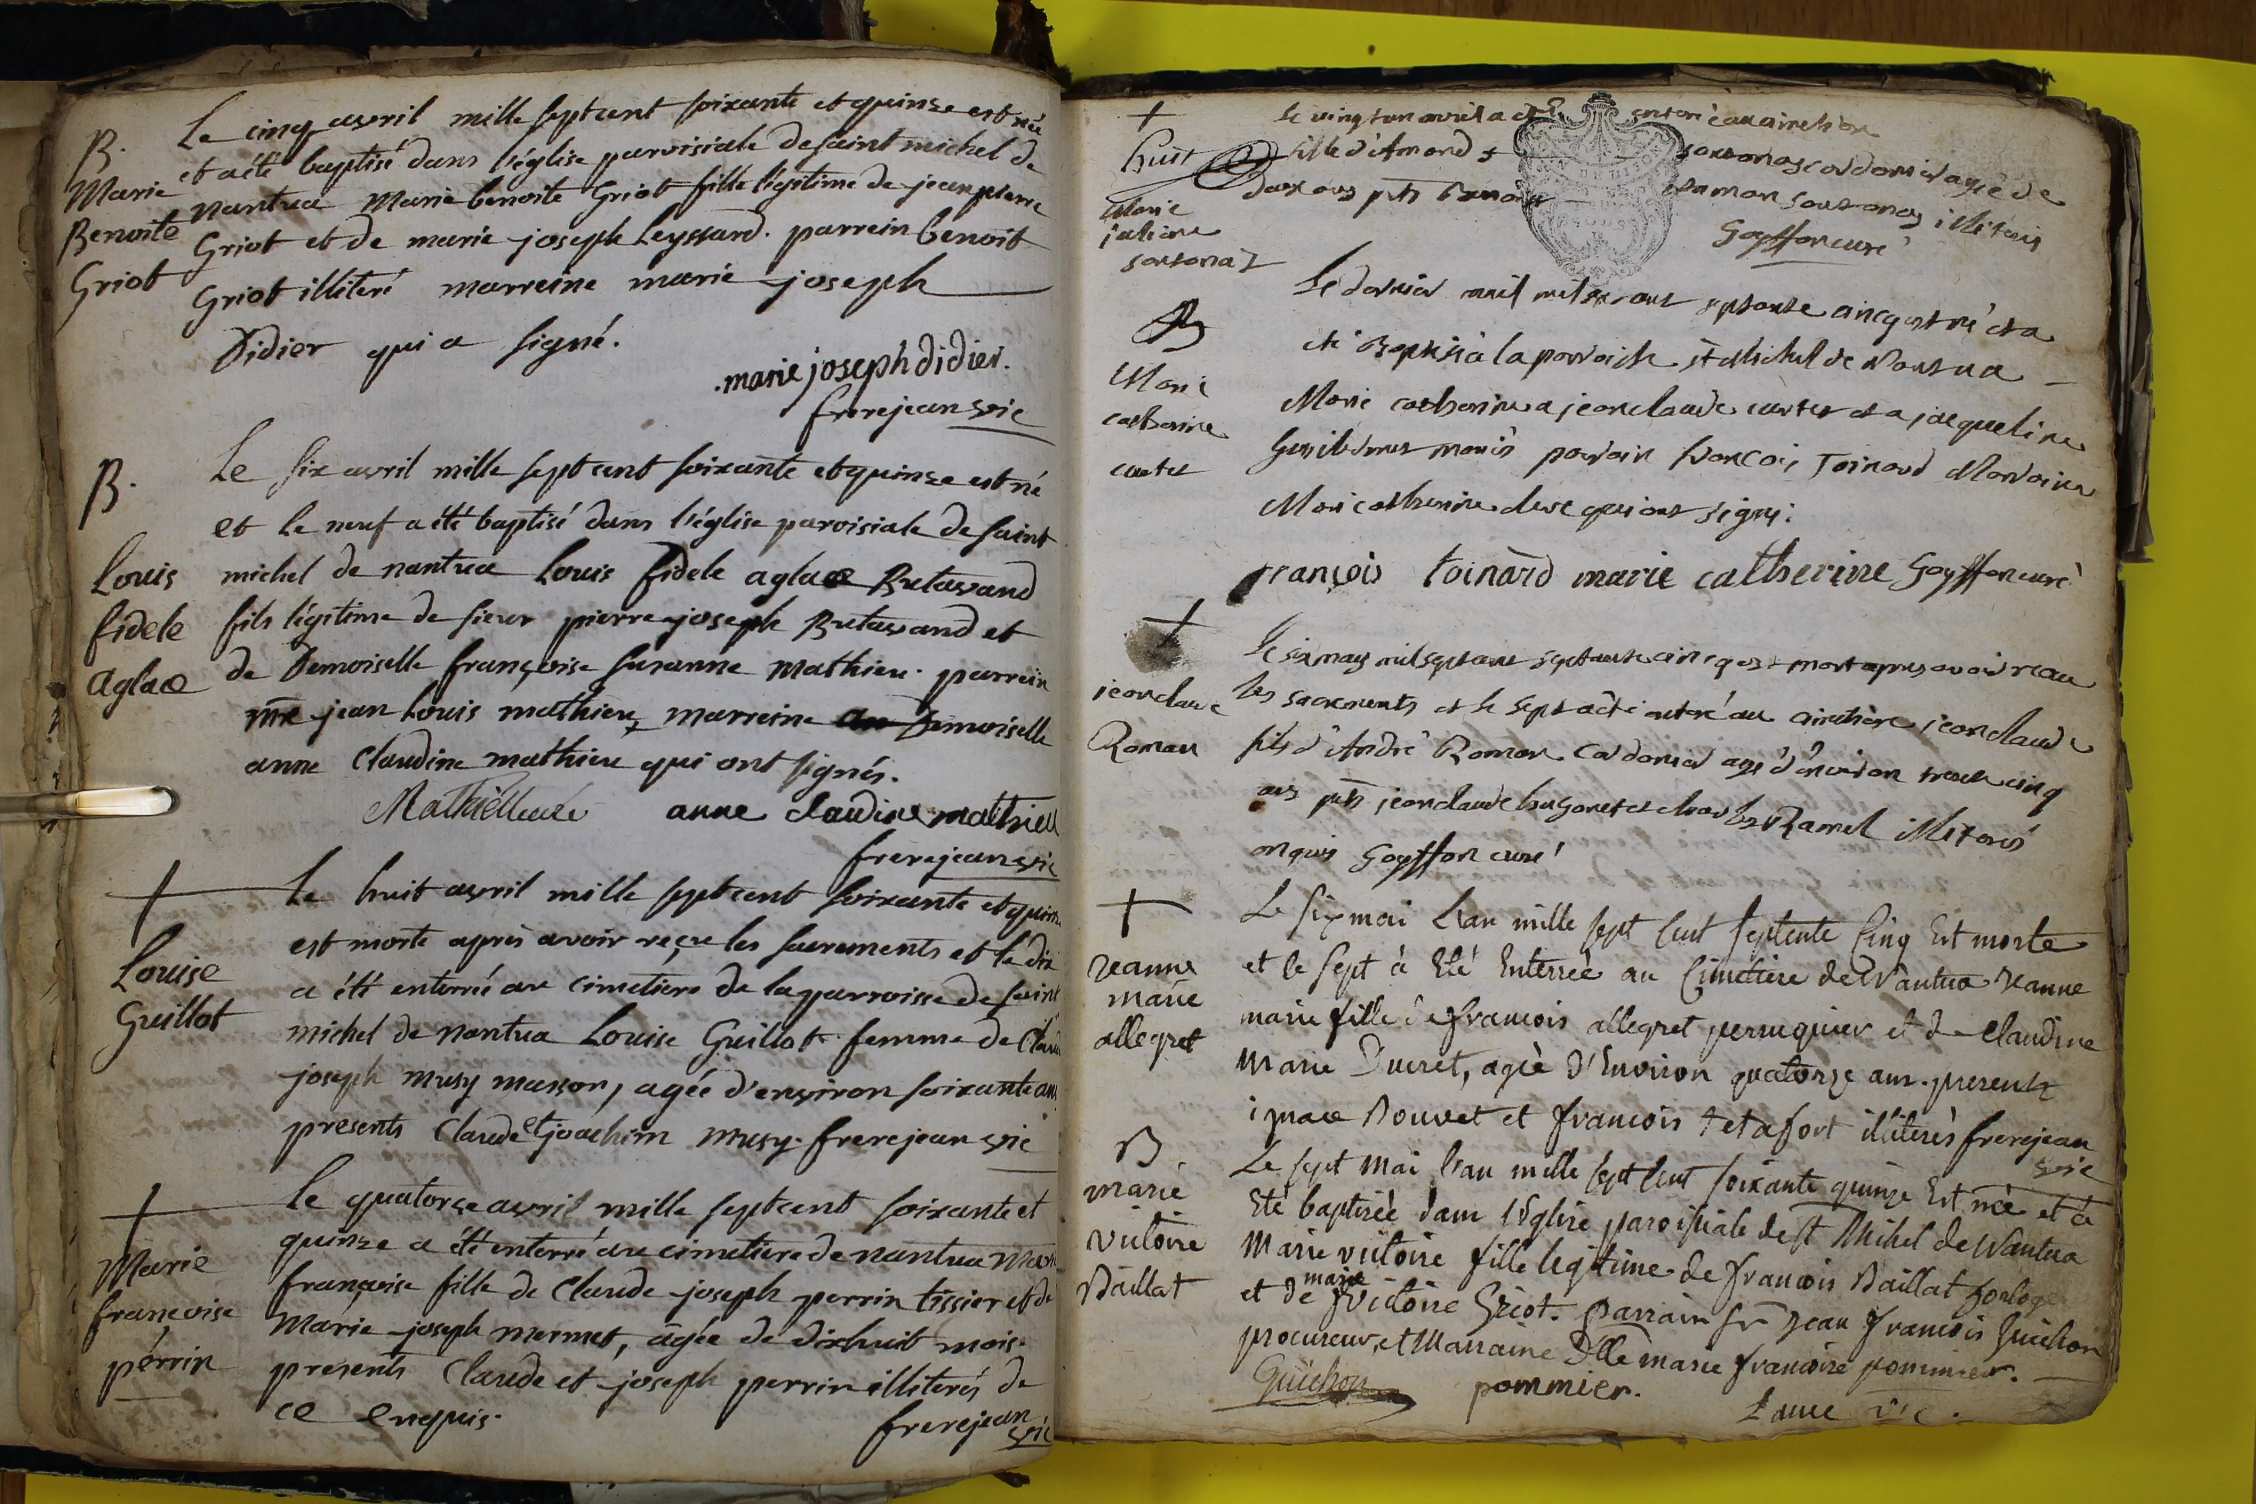 B.
Marie
Benoite
Griot
Le cinq avril mille sept cent soixante et quinze est née
et a été baptisé dans l'église paroisiale de saint michel de
nantua Marie benoite Griot fille légitime de jean pierre
Griot et de marie joseph Leyssard. parrein benoit
Griot illiteré marreine marie joseph
Didier qui a signé.
.marie joseph didier.
frerejean vic
B.
Louis
fidele
aglae
Le six avril mille sept cent soixante et quinze est né
et le neuf a été baptisé dans l'église paroisiale de saint
michel de nantua Louis fidele aglae Butavand
fils légitime de sieur pierre joseph Butavand et
de Demoiselle françoise susanne mathieu. parrein
mre jean Louis mathieu, marreine Demoiselle
anne Claudine mathieu qui ont signés.
anne claudine mathieu
frerejean vic
Louise
Guillot
Le huit avril mille sept cent soixante et quinze
est morte après avoir reçue les sacrements et le dix
a été enterrée au cimetiere de la parroisse de saint
michel de nantua Louise Guillot femme de Claude
joseph musy masson, agée d'environ soixante ans
presents Claude et joachim musy. frerejean vic
Marie
françoise
perrin
Le quatorze avril mille sept cent soixante et
quinze a été enterré au cimetiere de nantua Marie
françoise fille de Claude joseph perrin tissier et de
Marie joseph mermet, âgée de dixhuit mois.
presents Claude et joseph perrin illiterés de
ce enquis.
frerejean
vic
huit
Marie
juliene
sonthonas
Le vingt un avril a été enteré au cimetiere
fille d'Amand sonthonas cordonier agé de
deux ans pnts sonthonas illiterés
Goyffon curé
B
Marie
catherine
carter
Le dernier avril mil sept cent septante cinq est né et a
été Baptisé à la parroisse st Michel de Nantua
Marie catherine a jean claude carter et a jacqueline
mariés parrain François Toinard Marraine
Marie catherine qui ont signé.
françois toinard marie catherine Goyffon curé
jean claude
Roman
Le six may mil sept cent septante cinq est mort apres avoir recu
les sacrements et le sept a été enteré au cimetiere jean claude
fils d'André Roman cordonier agé d'environ trente cinq
ans pnts jean claude hugonet et charles Ramel illiterés
enquis Goyffon curé
Jeanne
marie
allegret
Le six mai L'an mille sept cent septente Cinq Est morte
et le sept à Eté Enterrée au Cimetiere de Nantua Jeanne
marie fille de francois allegret perruquier et de claudine
Marie Ducret, agée D'Environ quatorze ans. presents
ignace Douvet et francois tetafort illiterés frerejean
vic
B
marie
victoire
Baillat
Le sept Mai L'an mille sept cent soixante quinze Est née et à
Eté baptisée dans l'Eglise paroissiale de St Michel de Nantua
Marie victoire fille legitime de francois Baillat horloger
marie
et de victoire Griot. parrain sr Jean francois Guichon
procureur, et Marraine Dlle marie francoise pommier.
Guichon pommier.